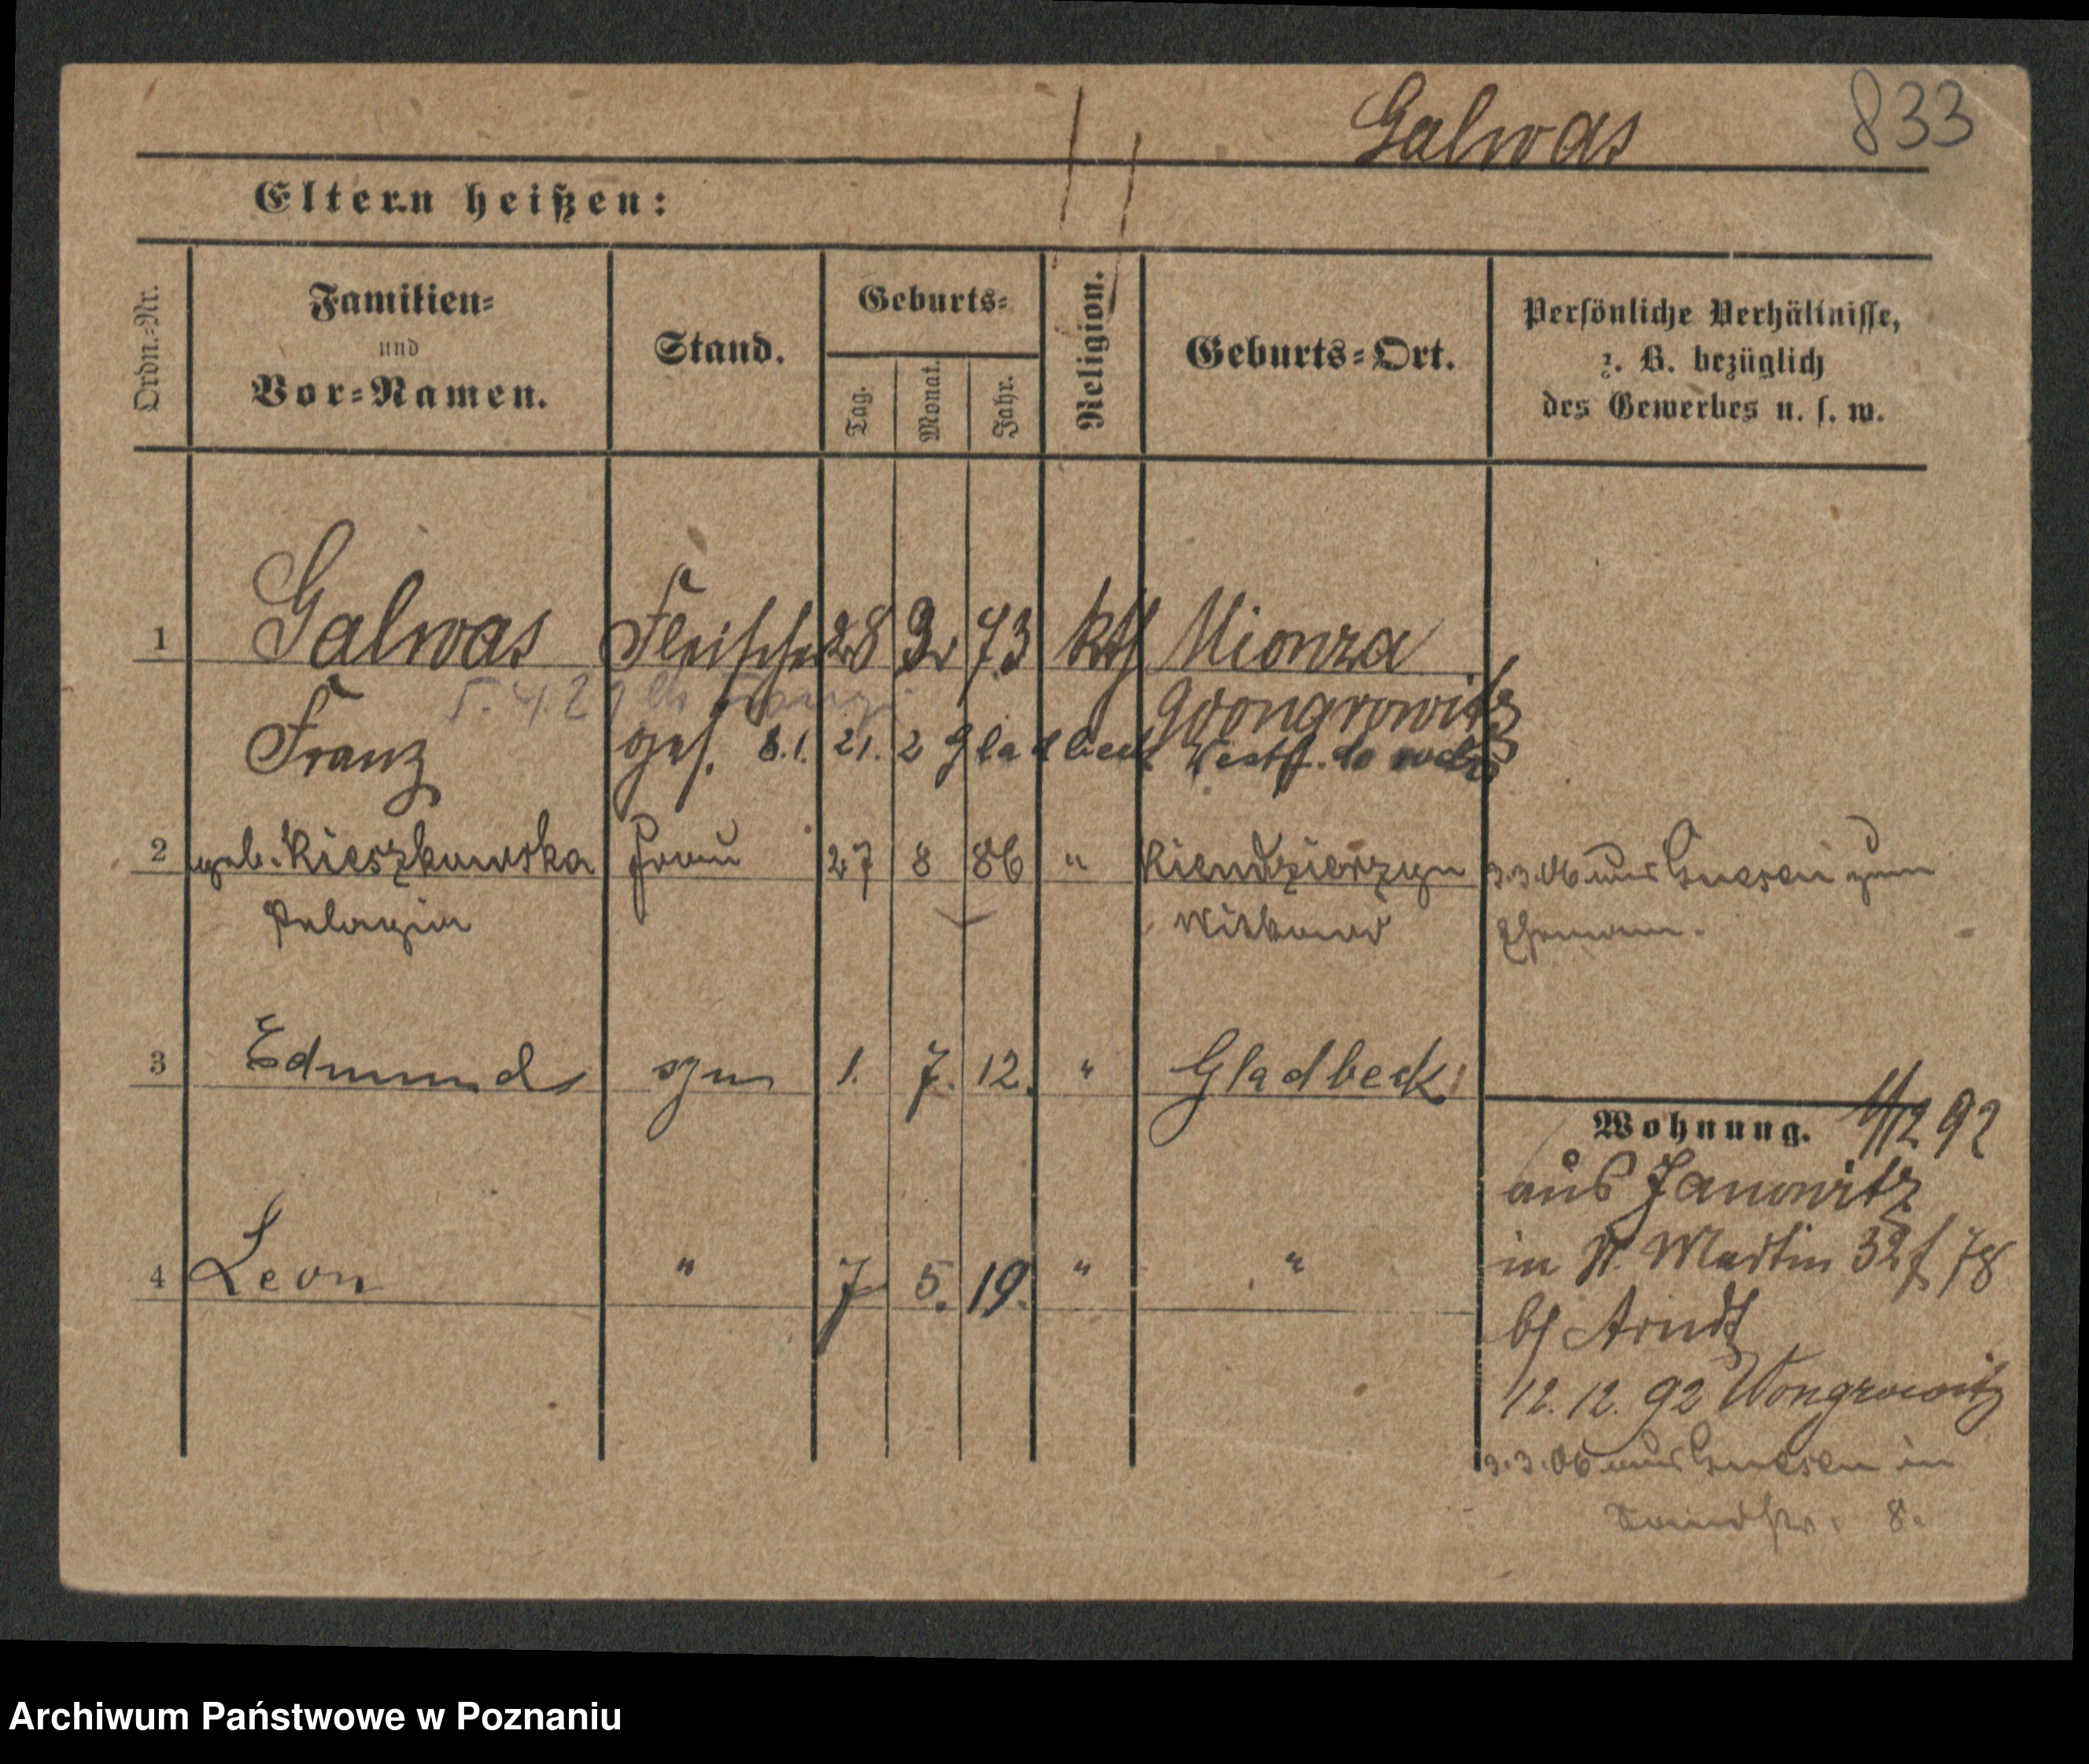 Galwas 833
Eltern heißen:
Ordn.=Nr.
Familien=
und
Vor=Namen.
Stand.
Geburts=
Tag.
Monat.
Jahr.
Religion.
Geburts=Ort.
Persönliche Verhältnisse,
z. B. bezüglich
des Gewerbes u. s. w.
1 Galwas Fleischer 28 2 73 kth Mionza
5. 4. 29
Wongrowitz
Franz ges. 8.1. 21. 2 Gladbeck Westf.
2 geb. Kieszkowska Frau 27 8 86 " Kiendzierzyn 3.3.06 aus Gnesen zum
Pelagia Witkowo Ehemann.
3 Edmund syn 1. 7. 12. " Gladbeck
4 Leon " 7 5. 19. " "
Wohnung. 92
aus Janowitz
in St. Martin 32 f 78
bei Arndt
12. 12. 92 Wongrowitz
3.3.06 aus Gnesen in
8.
Archiwum Państwowe w Poznaniu